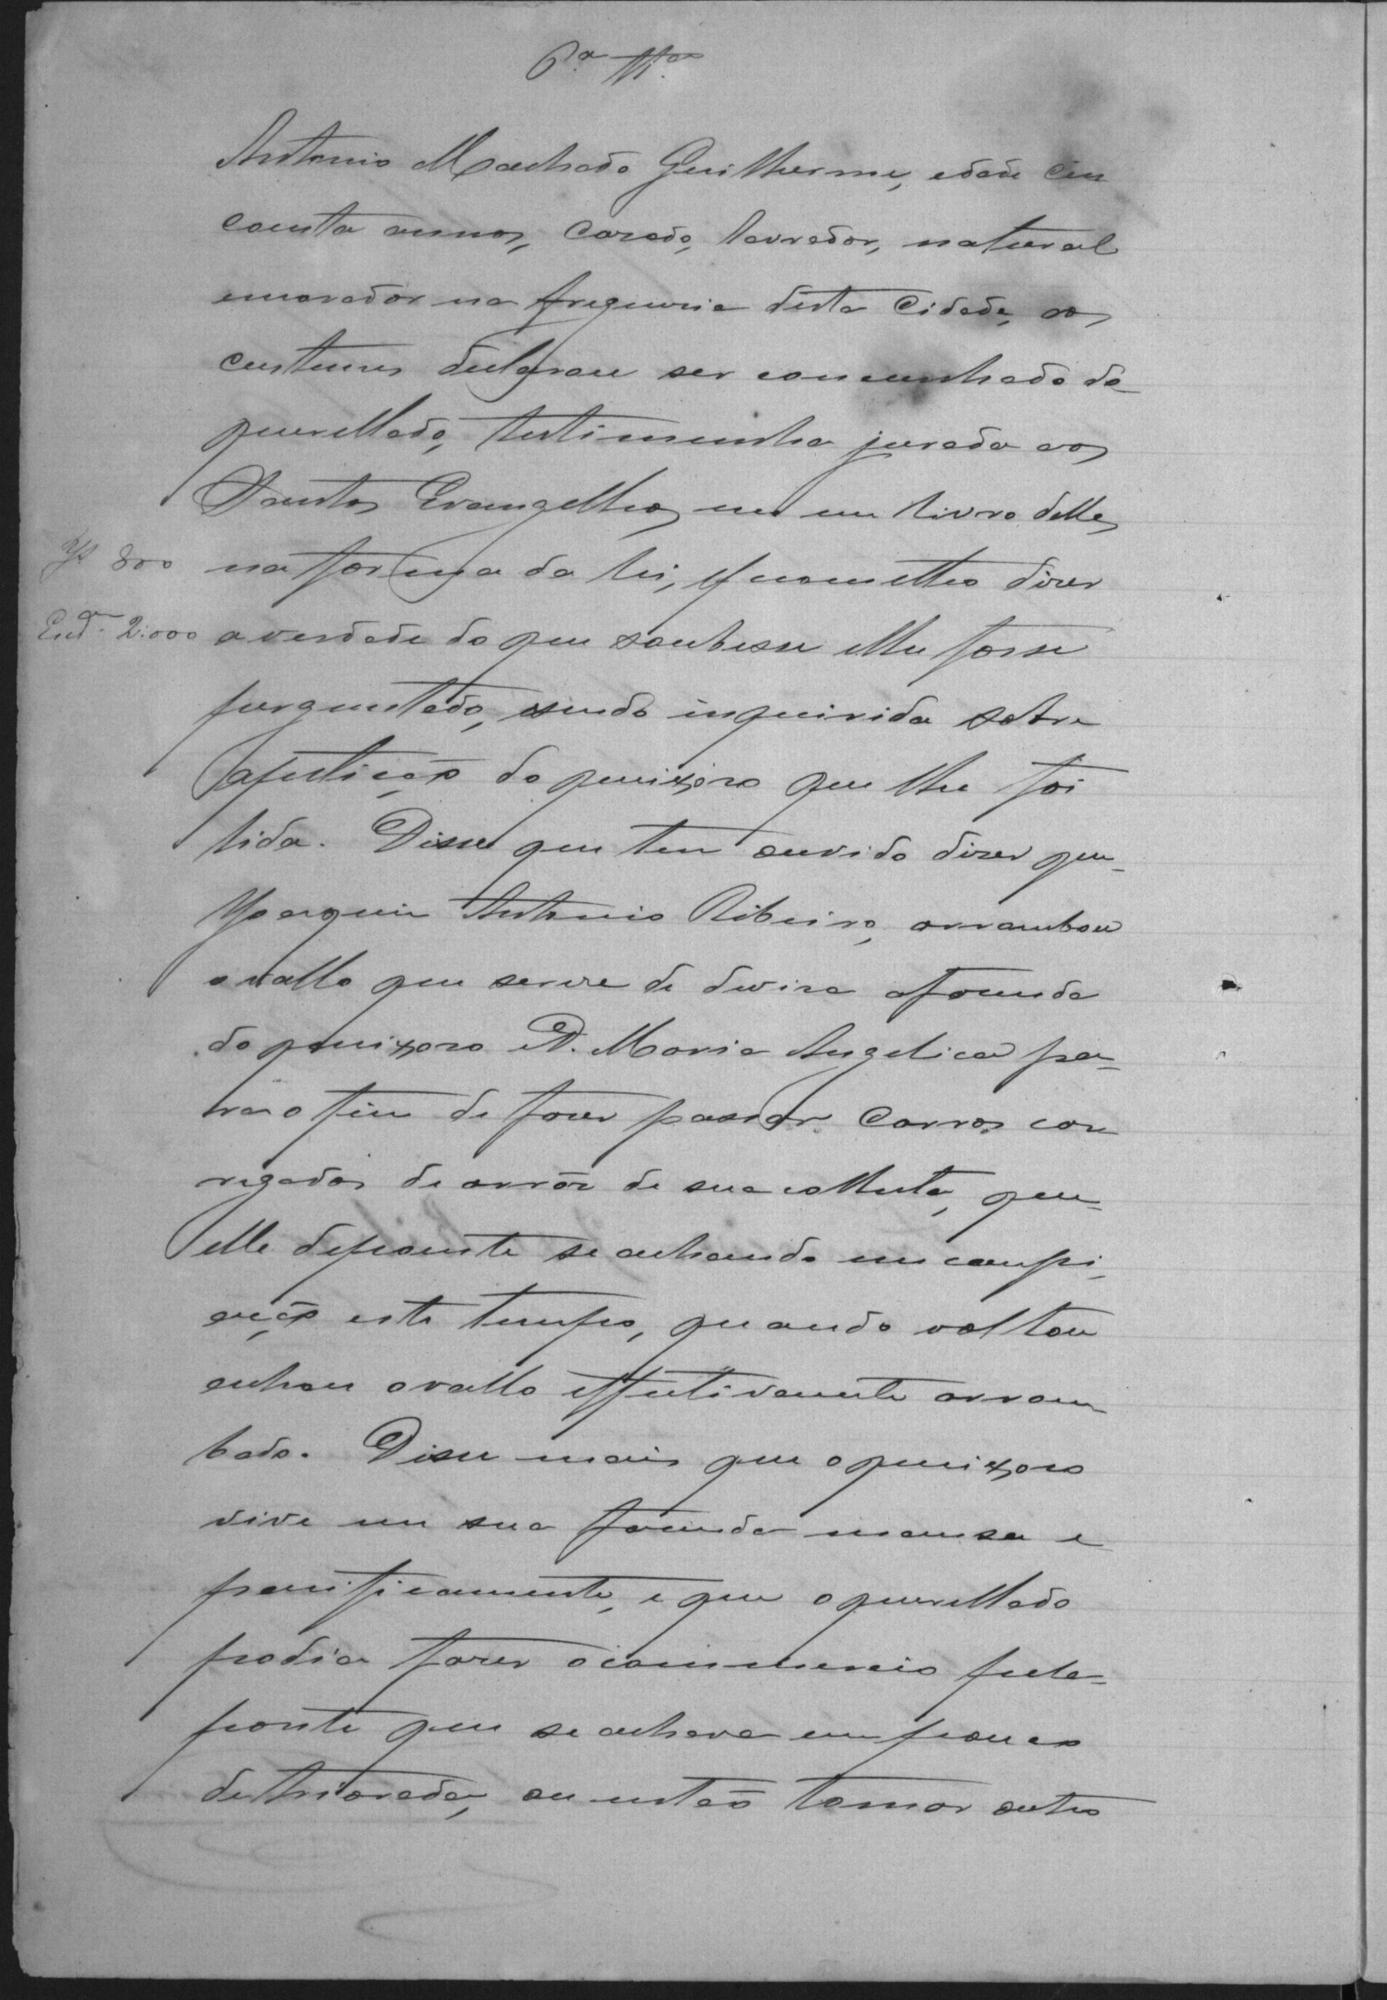 6.ª T.ª
Antonio Machado Guilherme, edade cin
coenta annos, casado, lavrador, natural
emorador na freguesia desta Cidade, aos
custumes declarou ser concunhado do
querellado, testimunha jurada aos
Santos Evangelhos em um livro delles
Jº 800 na forma da lei, eprometteo dizer
Cud.ª 2.000 a verdade do que soubesse elhe fosse
perguntado, esendo inquirida sobre
apetição do queixoso que lhe foi
lida. Disse que tem ouvido dizer que
Joaquim Antonio Ribeiro, arrombou
o vallo que serve de devisa afasenda
do queixoso e D. Maria Angelica pa-
ra o fim de faser passar carros car
regados de arrôz de sua colheita, que
elle depoente se achando em campi-
ação este tempo, quando voltou
achou ovallo effectivamente arrom
bado. Disse mais que o queixoso
vive em sua fasenda mansa e
pacificamente, e que o querellado
podia faser ocommercio pela
ponte que se achava um pouco
detriorada, ou então tomar outro